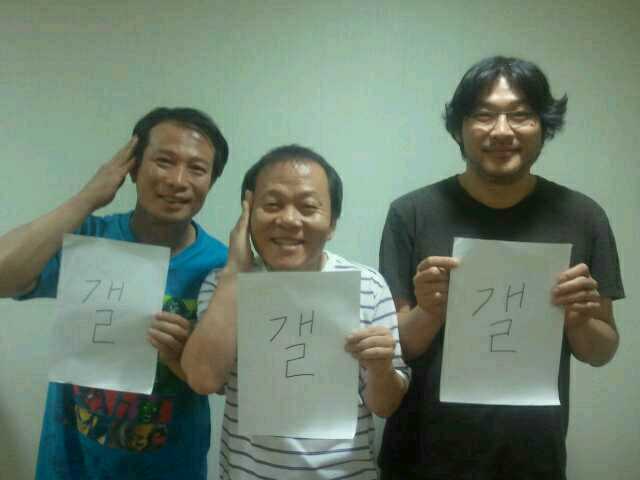 갤
갤
갤